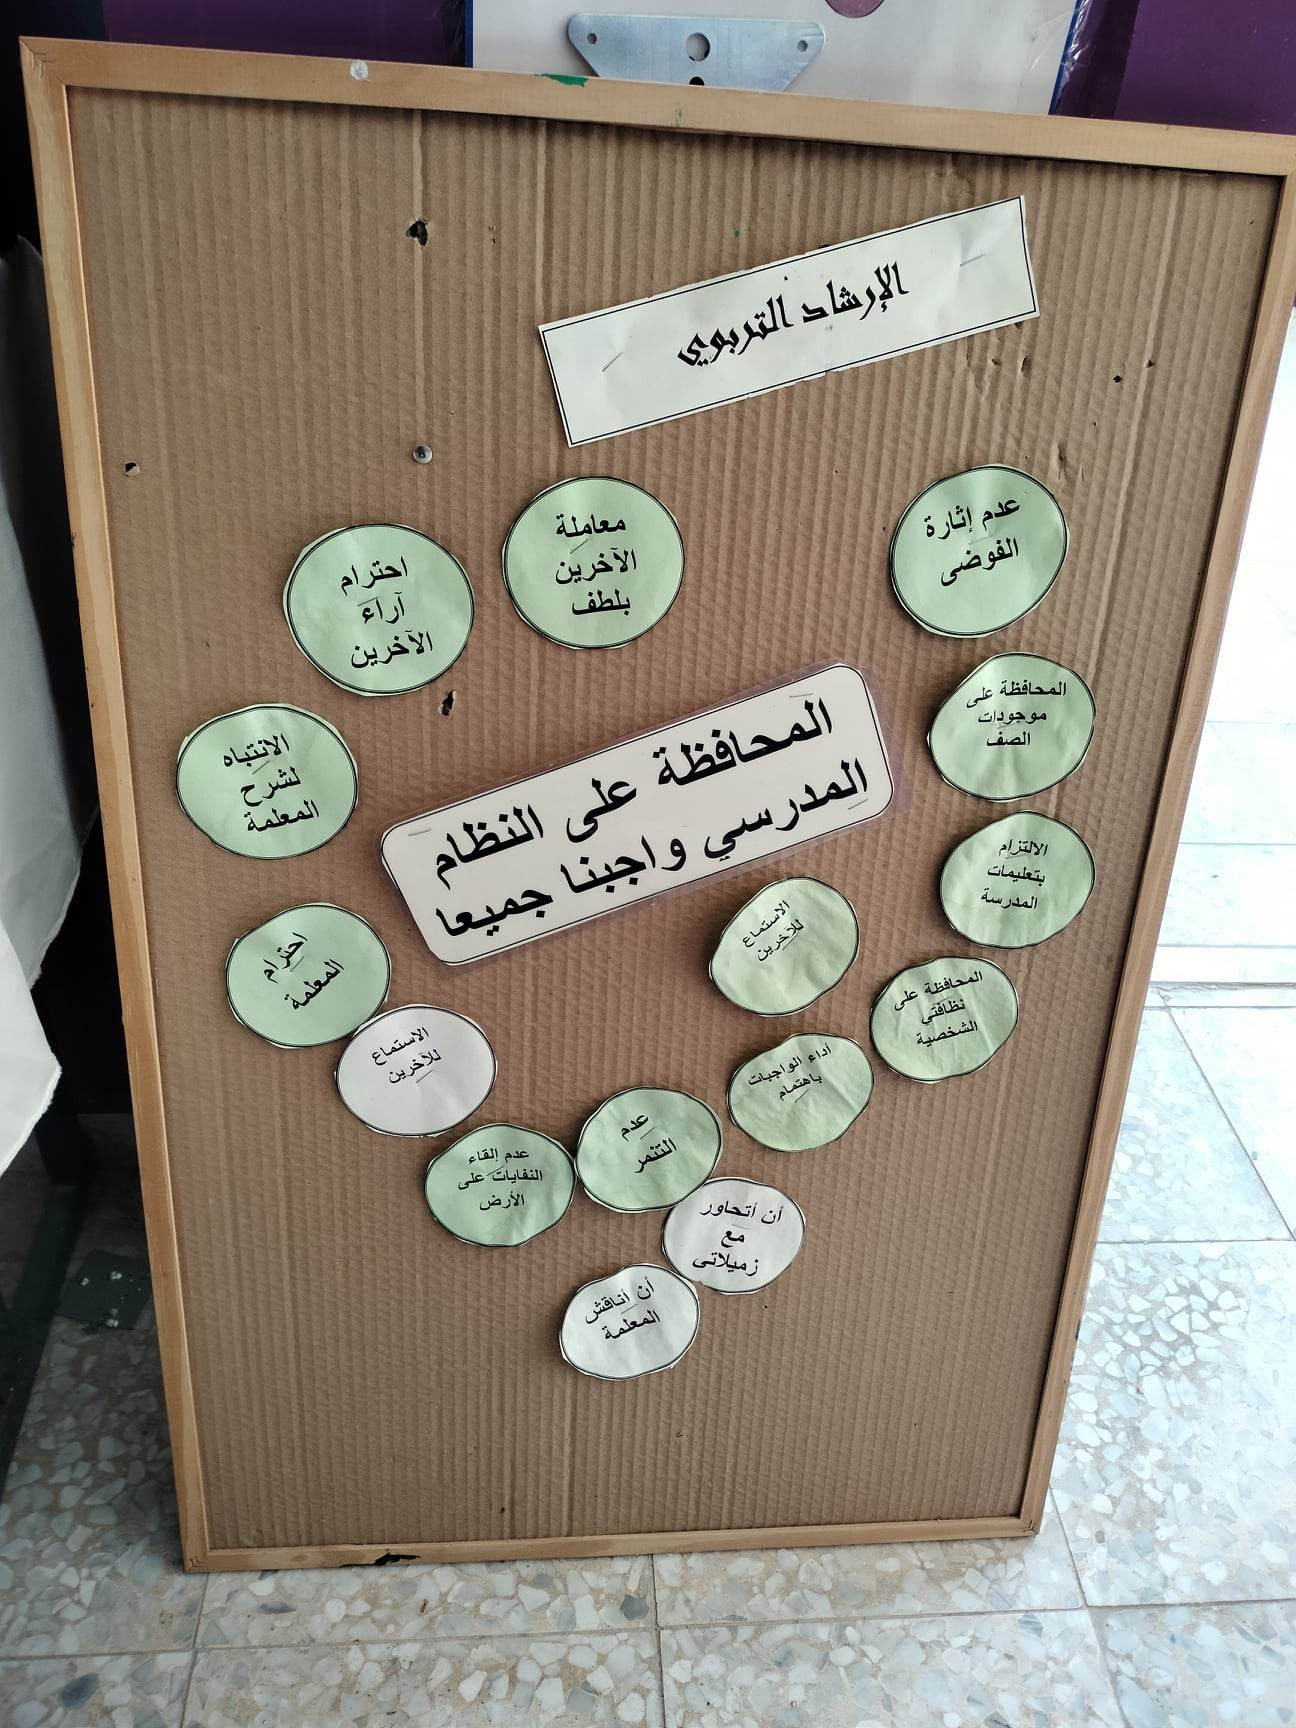 الإرشاد التربوي
عدم إثارة
الفوضى
معاملة
الآخرين
بلطف
احترام
آراء
الآخرين
المحافظة على
موجودات
الصف
المحافظة على النظام
المدرسي واجبنا جميعا
الانتباه
لشرح
المعلمة
الالتزام
بتعليمات
المدرسة
الاستماع
للآخرين
احترام
المعلمة
المحافظة على
نظافتي
الشخصية
الاستماع
للآخرين
أداء الواجبات
باهتمام
عدم
التنمر
عدم إلقاء
النفايات على
الأرض
أن أتحاور
مع
زميلاتي
أن أناقش
المعلمة